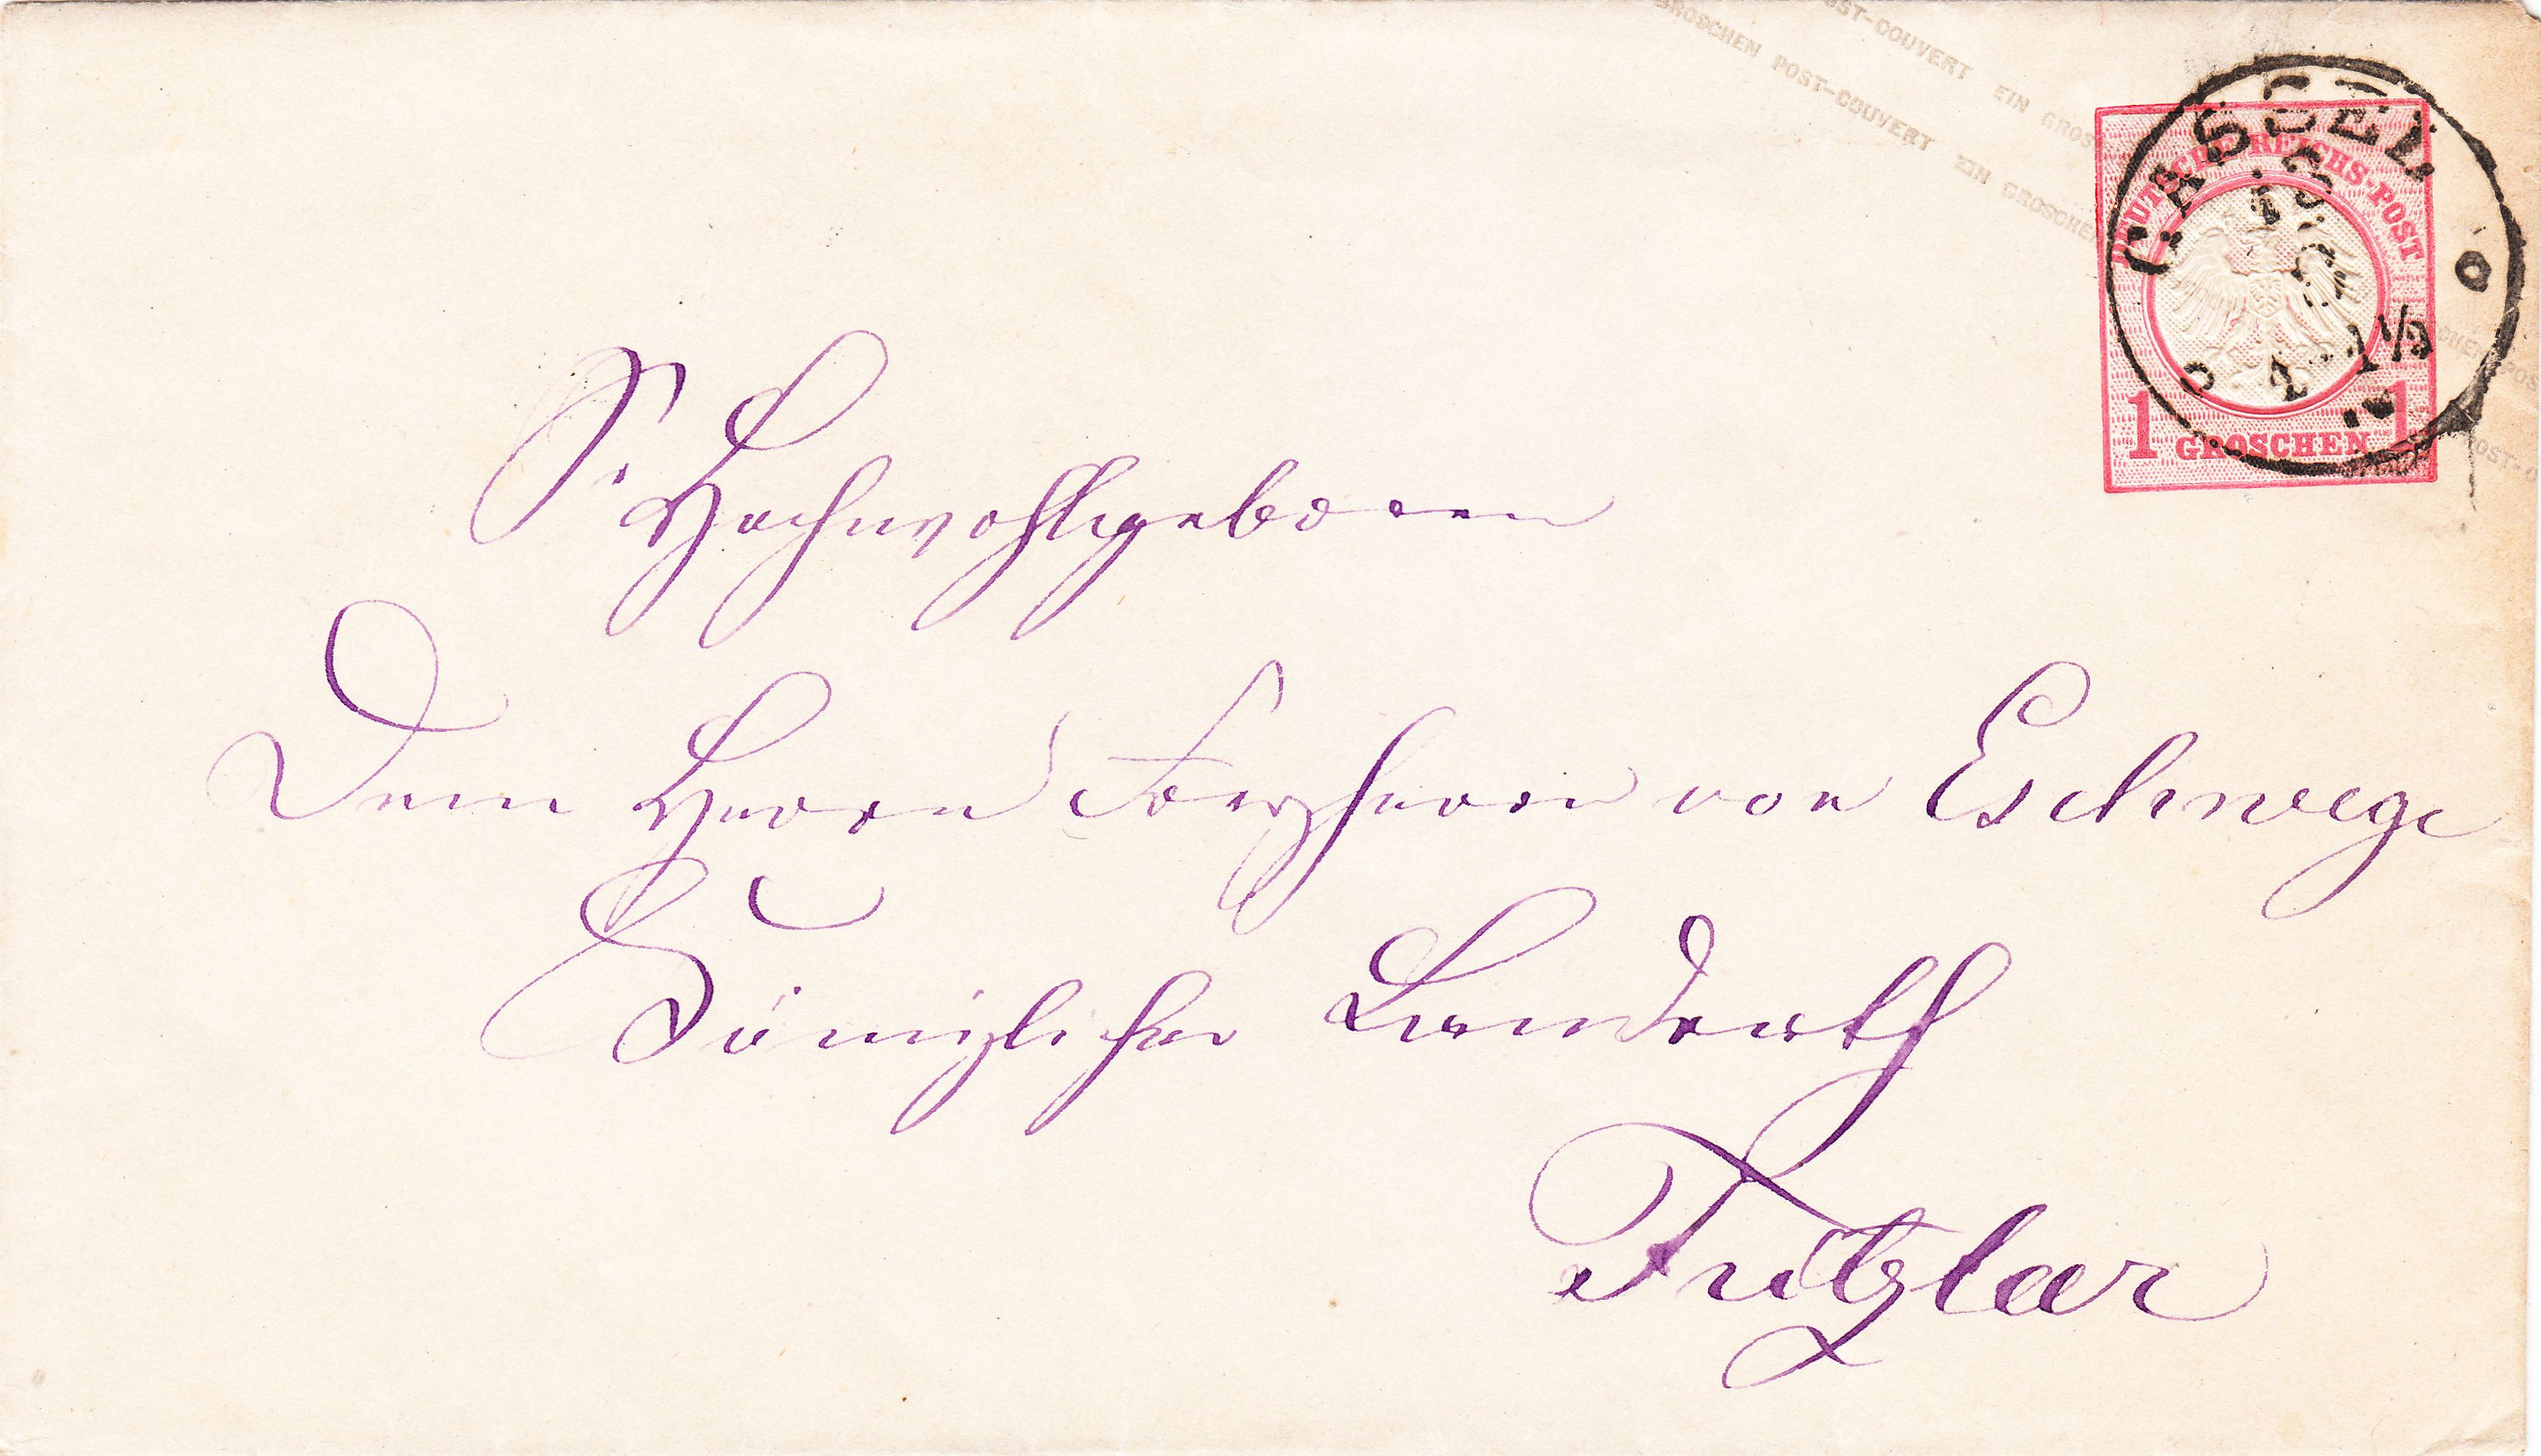 GROSCHEN POST-COUVERT EIN GROSCHEN
POST-COUVERT EIN GROS
DEUTSCHE REICHS-POST
1 GROSCHEN 1
CASSEL
13
Sr Hochwohlgeboren
Dem Herrn Freyherrn von Eschwege
Königlicher Landrath
Fritzlar